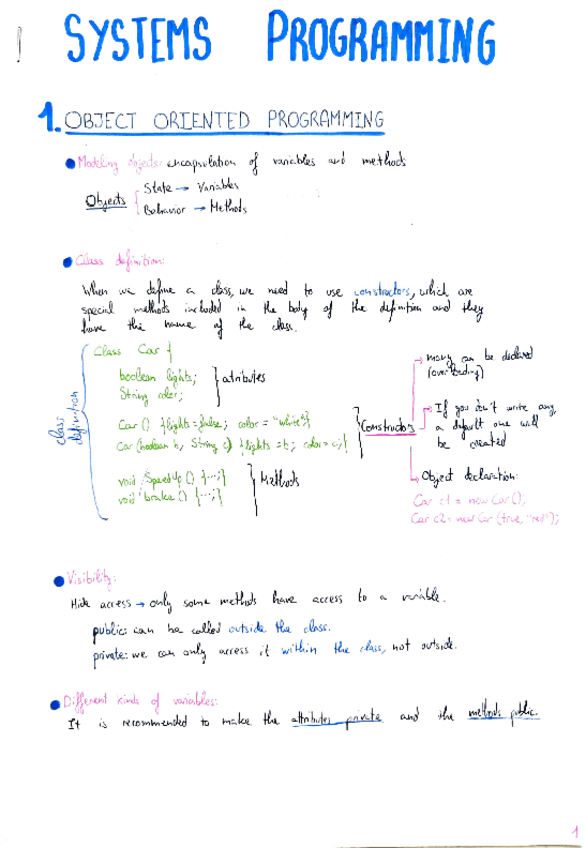 SYSTEMS PROGRAMMING
1. OBJECT ORIENTED PROGRAMMING
Modeling objects: encapsulation of variables and methods
Objects
State → Variables
Behavior → Methods
Class definition:
When we define a class, we need to use constructors, which are
special methods included in the body of the definition and they
have the name of the class.
class definition
Class Car {
boolean lights;
String color;
atributes
Car () {lights = false; color = "white"}
Car (boolean b, String c) {lights = b; color = c;}
Constructors
void SpeedUp () {...;}
void brake () {...;}
Methods
→ many can be declared
(overloading)
→ If you don't write any,
a default one will
be created
→ Object declaration:
Car c1 = new Car ();
Car c2 = new Car (true, "red");
Visibility:
Hide access → only some methods have access to a variable.
public: can be called outside the class.
private: we can only access it within the class, not outside.
Different kinds of variables:
It is recommended to make the attributes private and the methods public.
1